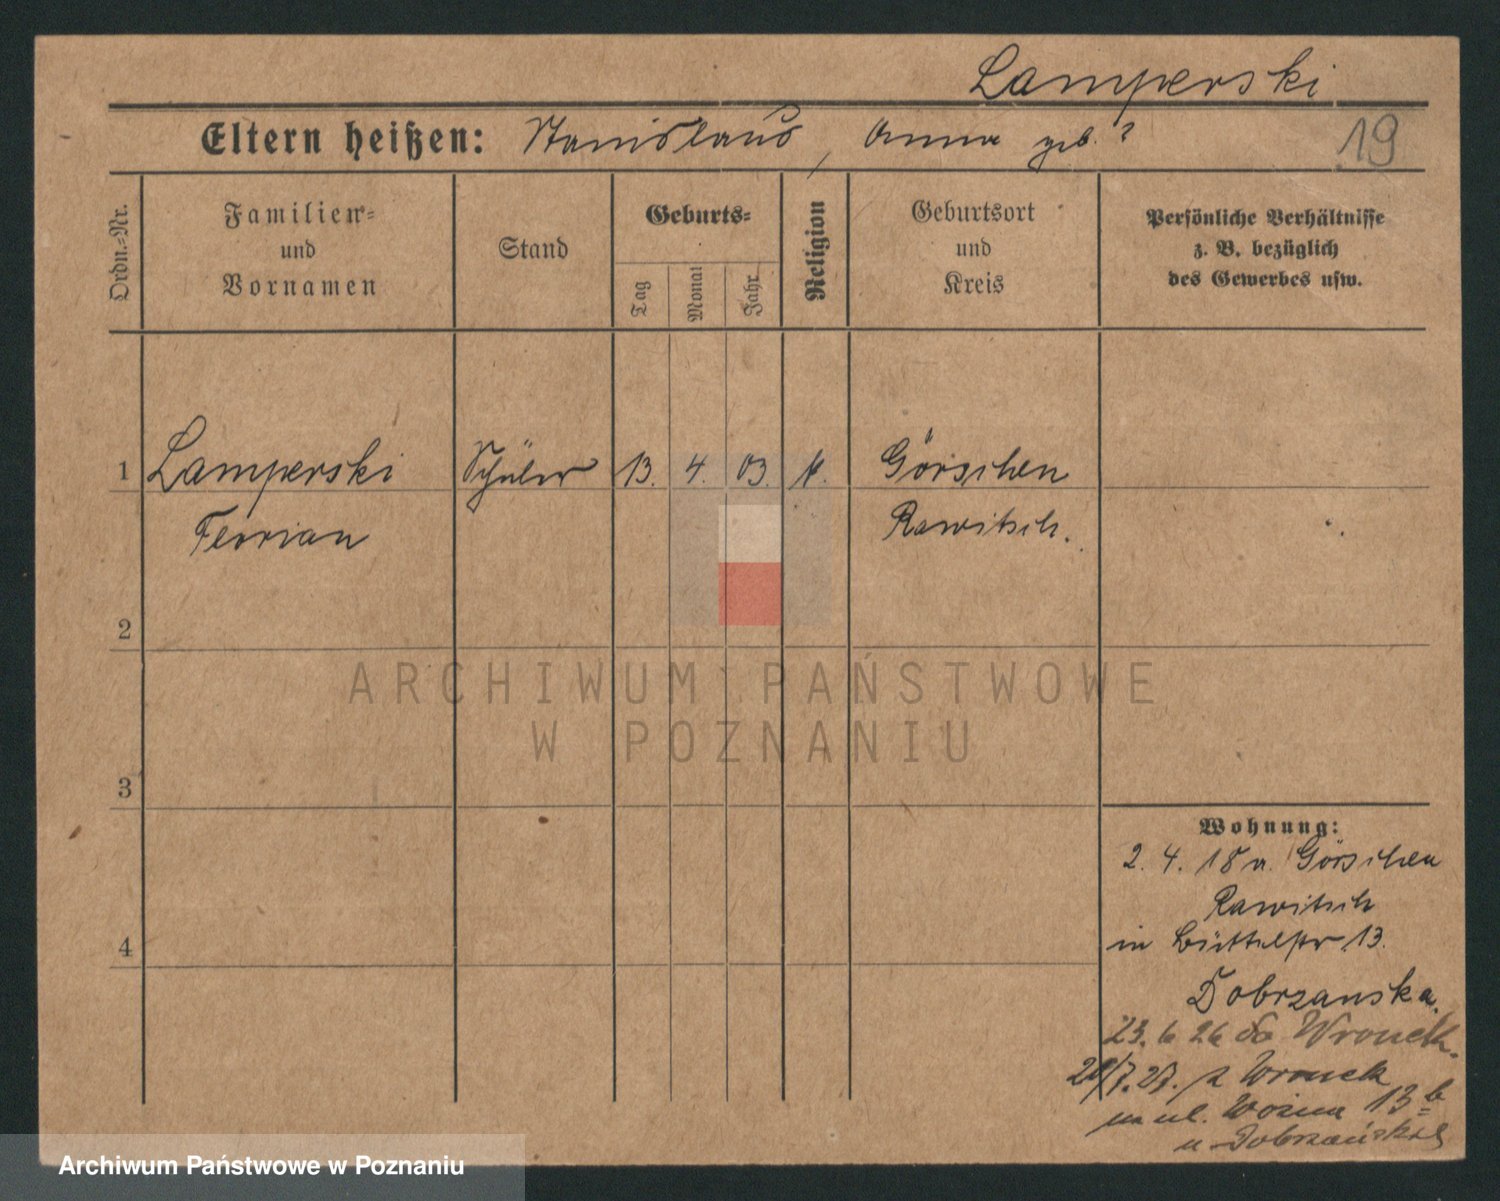 Lamperski
Eltern heißen: Stanislaus, Anna geb. ?
19
Ordn.=Nr.
Familien=
und
Vornamen
Stand
Geburts=
Tag
Monat
Jahr
Religion
Geburtsort
und
Kreis
Persönliche Verhältnisse
z. B. bezüglich
des Gewerbes usw.
1 Lamperski Schüler 13. 4. 03. k. Görschen
Florian Rawitsch.
2
3
4
Wohnung:
2. 4. 18 v. Görschen
Rawitsch
in Büttelstr 13.
Dobrzanska.
23. 6 26 do Wronek.
7.27. z Wronek
na ul. Woźna 13 b
u Dobrzańskiej
ARCHIWUM PAŃSTWOWE
W POZNANIU
Archiwum Państwowe w Poznaniu